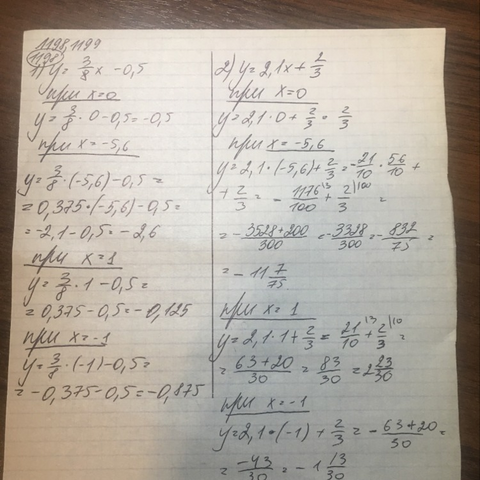 1198, 1199
1198
1) y = 3/8 x - 0,5
при x=0
y = 3/8 · 0 - 0,5 = -0,5
при x = -5,6
y = 3/8 · (-5,6) - 0,5 =
= 0,375 · (-5,6) - 0,5 =
= -2,1 - 0,5 = -2,6
при x = 1
y = 3/8 · 1 - 0,5 =
= 0,375 - 0,5 = -0,125
при x = -1
y = 3/8 · (-1) - 0,5 =
= -0,375 - 0,5 = -0,875
2) y = 2,1x + 2/3
при x=0
y = 2,1 · 0 + 2/3 = 2/3
при x = -5,6
y = 2,1 · (-5,6) + 2/3 = -21/10 · 56/10 +
+ 2/3 = -1176/100 |3 + 2/3 |100 =
= -3528+200/300 = -3328/300 = -832/75 =
= -11 7/75
при x = 1
y = 2,1 · 1 + 2/3 = 21/10 |3 + 2/3 |10 =
= 63+20/30 = 83/30 = 2 23/30
при x = -1
y = 2,1 · (-1) + 2/3 = -63+20/30 =
= -43/30 = -1 13/30